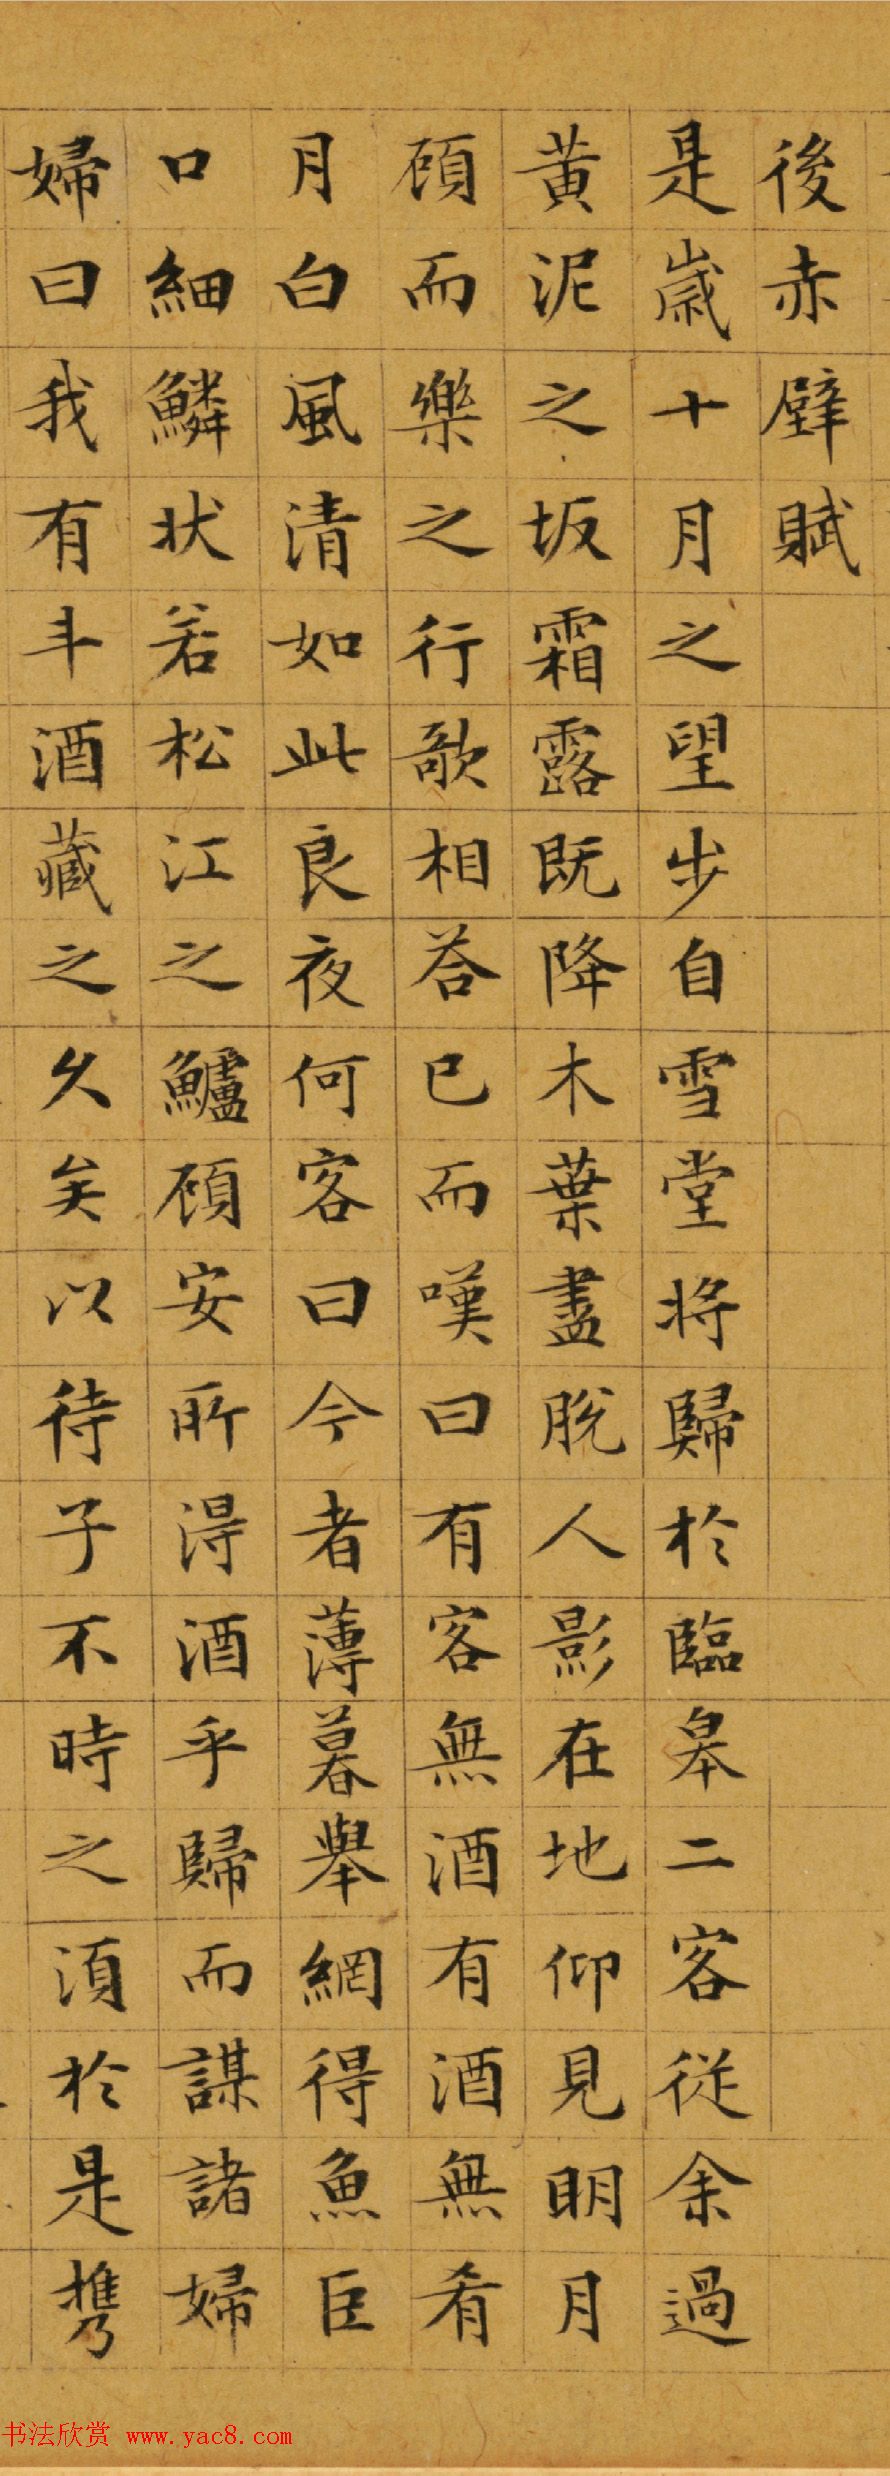 後赤壁賦
是歳十月之望步自雪堂將歸於臨皋二客從余過
黃泥之坂霜露既降木葉盡脫人影在地仰見明月
顧而樂之行歌相荅已而嘆曰有客無酒有酒無肴
月白風清如此良夜何客曰今者薄暮舉網得魚巨
口細鱗狀若松江之鱸顧安所得酒乎歸而謀諸婦
婦曰我有斗酒藏之久矣以待子不時之須於是攜
书法欣赏 www.yac8.com